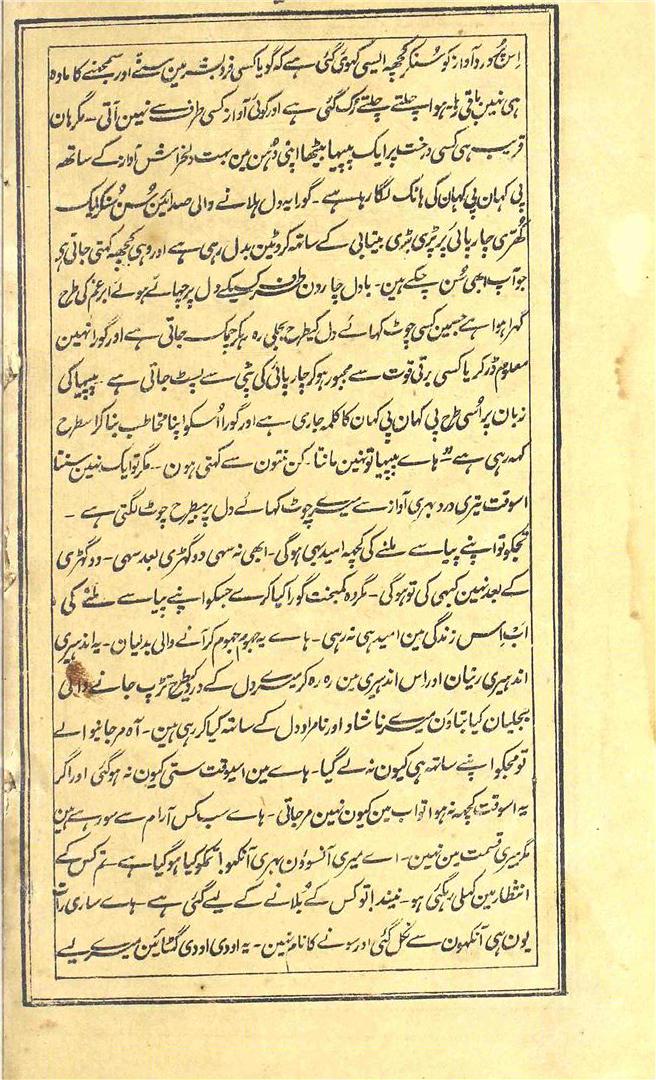 اس پُر درد آواز کو سُنکر کچھہ ایسی کھوئی گئی ہے کہ گویا کسی فرد بشر مین سننے اور سمجھنے کا مادہ
ہی نہین باقی رہا۔ ہوا چلتے چلتے رُک گئی ہے اور کوئی آواز کسی طرف سے نہین آتی۔ مگر ہان
قریب ہی کسی درخت پر ایک پپیہا بیٹھا اپنی دُہن مین بہت دلخراش آواز کے ساتھہ
پی کہان پی کہان کی ہانک لگا رہا ہے۔ گورا یہ دل ہلانے والی صدائین سُن سُنکر ایک
کُھرّی چارپائی پر پڑی بڑی بیتابی کے ساتھ کروٹین بدل رہی ہے اور وہی کچھہ کہتی جاتی ہے
جو آپ ابھی سُن چکے ہین۔ بادل چارون طرف کسیکے دل پر چھائے ہوئے ابر غم کی طرح
گہرا ہوا ہے جسمین کسی چوٹ کھائے دل کیطرح بجلی رہ رہکر چمک جاتی ہے اور گورا نہین
معلوم ڈر کر یا کسی برقی قوت سے مجبور ہو کر چارپائی کی پٹی سے لپٹ جاتی ہے۔ پپیہا کی
زبان پر اُسی طرح پی کہان پی کہان کا کلمہ جاری ہے اور گورا اُسکو اپنا مخاطب بنا کر اسطرح
کہہ رہی ہے "ہاے پپیہا تو نہین مانتا۔ کن منتون سے کہتی ہون۔ مگر تو ایک نہین سنتا
اسوقت تیری درد بھری آواز سے میرے چوٹ کھائے دل پر بیطرح چوٹ لگتی ہے۔
تجکو تو اپنے پیا سے ملنے کی کچھہ امید بھی ہوگی۔ ابھی نہ سہی دو گھڑی بعد سہی۔ دو گھڑی
کے بعد نہین کبھی کی تو ہوگی۔ مگر وہ کمبخت گورا کیا کرے جسکو اپنے پیا سے ملنے کی
اب اِس زندگی مین امید ہی نہ رہی۔ ہاے یہ جھوم جھوم کر آنے والی بدلیان۔ یہ اندہیری
اندہیری رتیان اور اس اندہیری مین رہ رہ کر میرے دل کے درد کیطرح تڑپ جانے والی
بجلیان کیا بتاؤن میرے ناشاد اور نامراد دل کے ساتھ کیا کر رہی ہین۔ آہ مرجانیوالے
تو مجکو اپنے ساتھ ہی کیون نہ لے گیا۔ ہاے مین اسیوقت ستی کیون نہ ہوگئی اور اگر
یہ اسوقت کچھہ نہ ہوا تو اب مین کیون نہین مرجاتی۔ ہاے سب کس آرام سے سو رہے ہین
مگر میری قسمت مین نہین۔ اے میری آنسوؤن بھری آنکھو! تمکو کیا ہوگیا ہے تم کس کے
انتظار مین کھلی رہگئی ہو۔ نیند! تو کس کے بُلانے کے لیے گئی ہے۔ ہاے ساری رات
یون ہی آنکھون سے نکل گئی اور سونے کا نام نہین۔ یہ اودی اودی گھٹائین میرے لیے